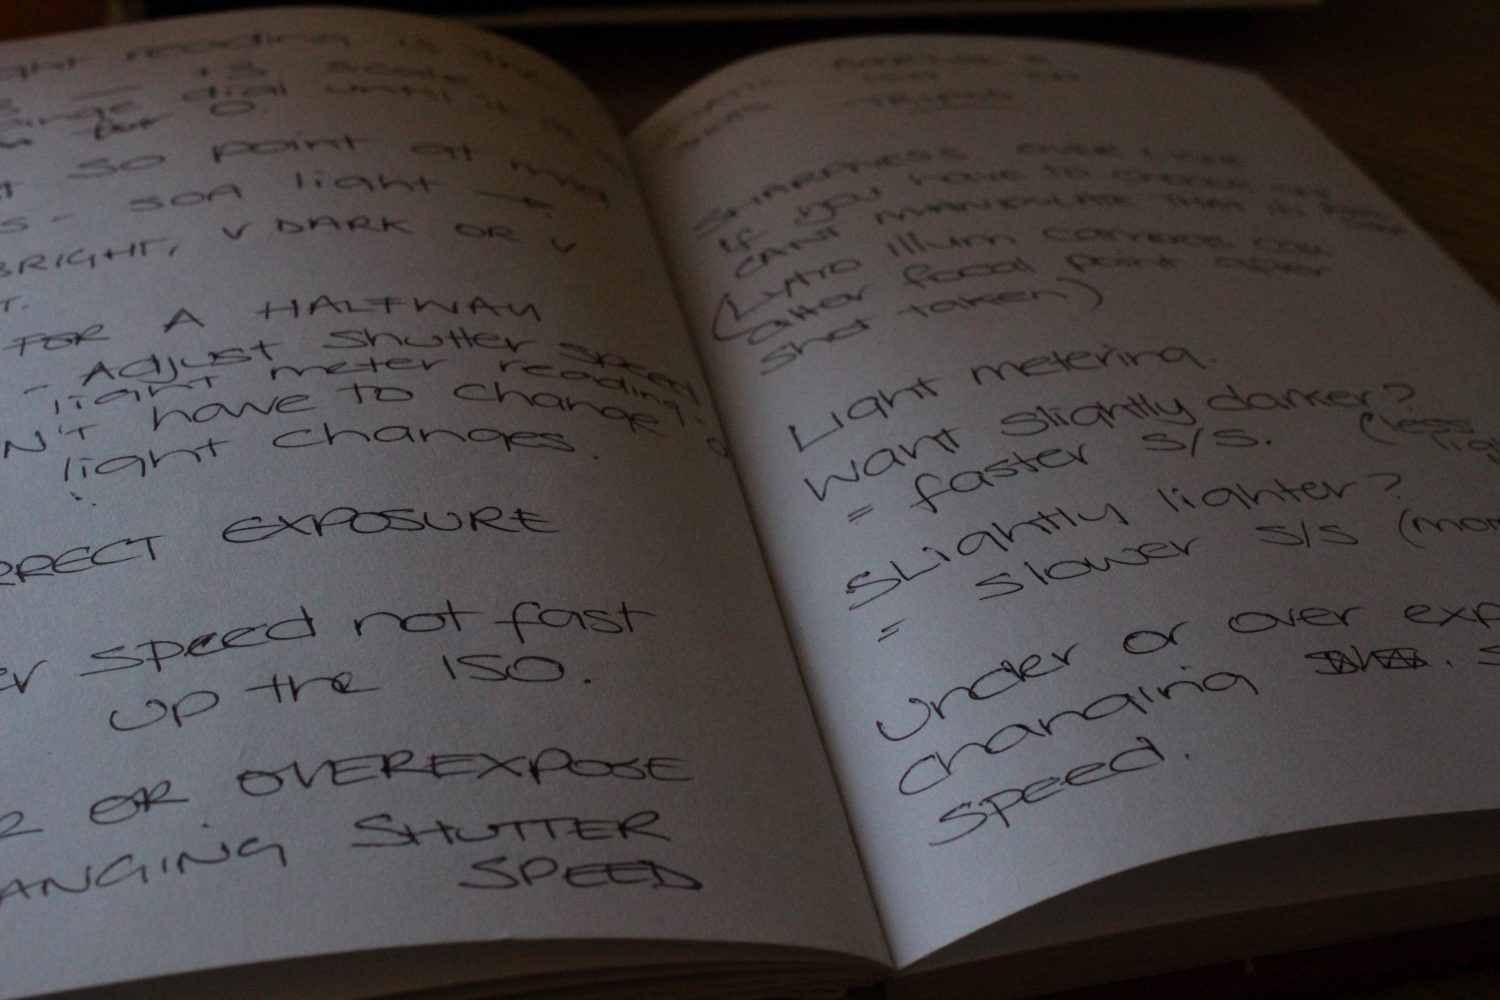 reading is the
+3 scale
dial until it is
0.
so point at mid
- 50A light →
BRIGHT, V DARK OR V
FOR A HALFWAY
- Adjust shutter speed
light meter reading.
N'T have to change
light changes.
RRECT EXPOSURE
er speed not fast
up the ISO.
R OR OVEREXPOSE
ANGING SHUTTER
SPEED
TRIPOD
SHARPNESS OVER
If you have to choose
CANT MANIPULATE THAT in
(Lytro illum cameras can
alter focal point after
shot taken)
Light metering.
want slightly darker?
= faster s/s. (less
light
slightly lighter?
= slower s/s (mor
under or over exp
changing s
speed.